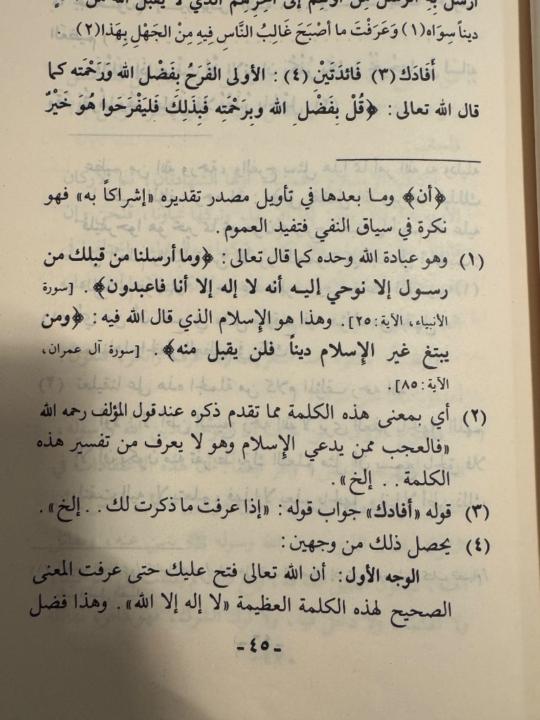 أرسل به الرسل من أولهم إلى آخرهم الذي لا يقبل الله من
ديناً سِوَاه(١) وَعَرَفْتَ ما أصْبَحَ غَالِبُ النَّاسِ فِيهِ مِنْ الجَهْلِ بِهَذا(٢)
أَفَادَك(٣) فَائدَتَيْن(٤) : الأولى الفَرَحُ بِفَضْل الله وَرَحْمَته كما
قال الله تعالى: ﴿قُلْ بِفَضْلِ الله وبِرَحْمَتِه فَبِذَلِكَ فَليَفْرَحوا هُوَ خَيْرٌ
﴿أن﴾ وما بعدها في تأويل مصدر تقديره «إشراكاً به» فهو
نكرة في سياق النفي فتفيد العموم.
(١) وهو عبادة الله وحده كما قال تعالى: ﴿وما أرسلنا من قبلك من
رسول إلا نوحي إليه أنه لا إله إلا أنا فاعبدون﴾. [سورة
الأنبياء، الآية: ٢٥]. وهذا هو الإسلام الذي قال الله فيه: ﴿ومن
يبتغ غير الإسلام ديناً فلن يقبل منه﴾. [سورة آل عمران،
الآية: ٨٥].
(٢) أي بمعنى هذه الكلمة مما تقدم ذكره عند قول المؤلف رحمه الله
«فالعجب ممن يدعي الإسلام وهو لا يعرف من تفسير هذه
الكلمة . . إلخ».
(٣) قوله «أفادك» جواب قوله: «إذا عرفت ما ذكرت لك . . إلخ».
(٤) يحصل ذلك من وجهين:
الوجه الأول: أن الله تعالى فتح عليك حتى عرفت المعنى
الصحيح لهذه الكلمة العظيمة «لا إله إلا الله». وهذا فضل
- ٤٥ -